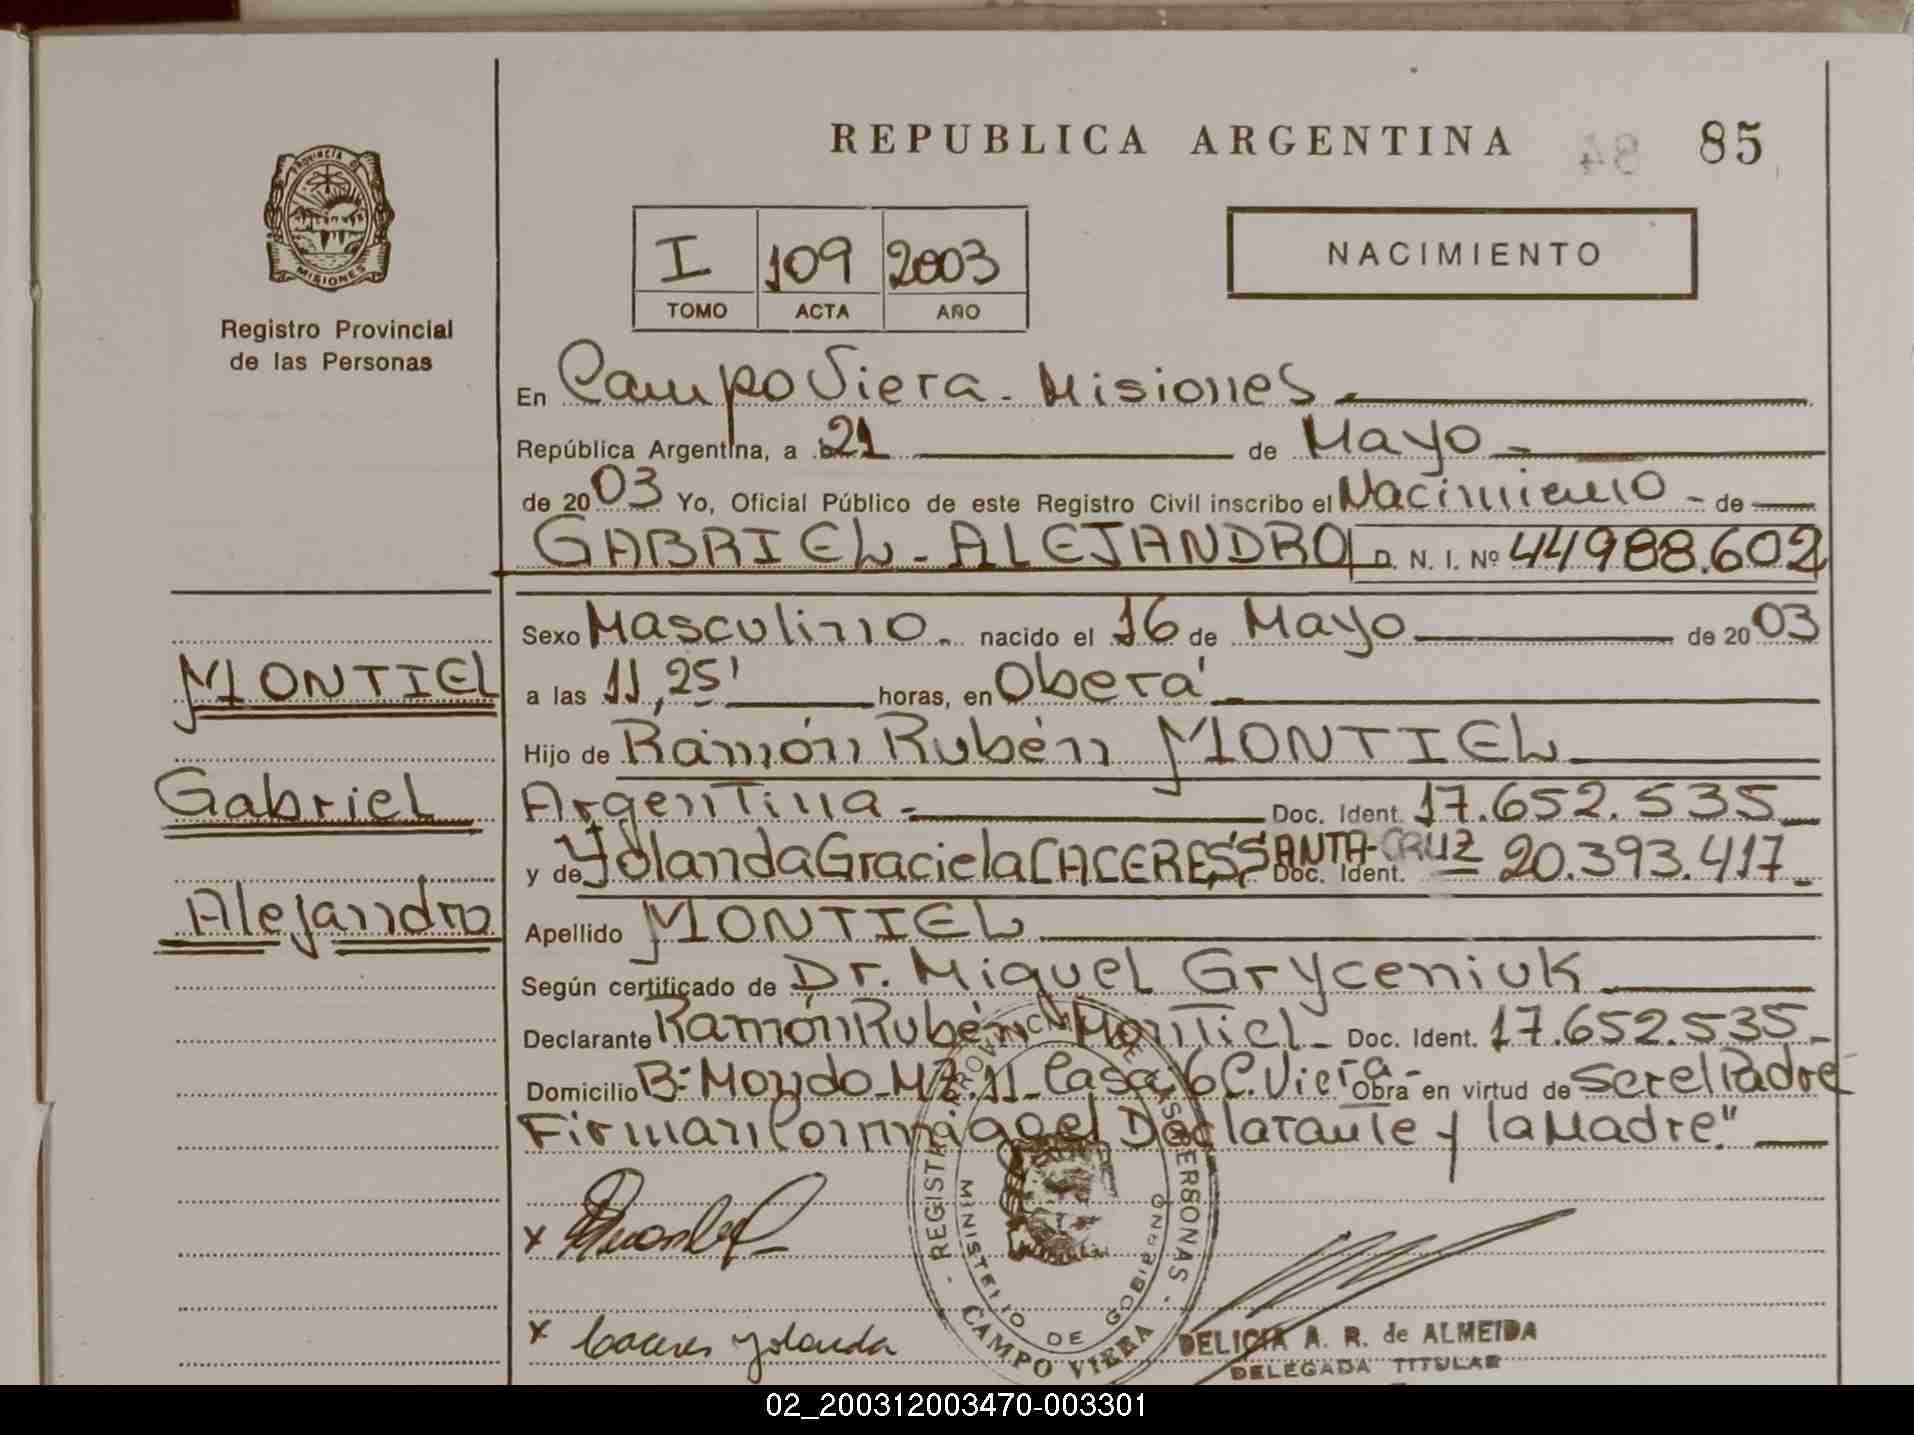 REPUBLICA ARGENTINA
84
85
PROVINCIA DE
MISIONES
Registro Provincial
de las Personas
I 109 2003
TOMO ACTA AÑO
NACIMIENTO
En Campo Viera - Misiones
República Argentina, a 21 de Mayo -
de 2003 Yo, Oficial Público de este Registro Civil inscribo el Nacimiento - de
GABRIEL - ALEJANDRO D. N. I. Nº 44988.602
Sexo Masculino - nacido el 16 de Mayo de 2003
a las 11,25' horas, en Oberá
Hijo de Ramón Rubén MONTIEL
Argentina - Doc. Ident. 17.652.535
y de Yolanda Graciela CACERES, SANTA-CRUZ Doc. Ident. 20.393.417
Apellido MONTIEL
Según certificado de Dr. Miguel Gryceniuk
Declarante Ramón Rubén Montiel - Doc. Ident. 17.652.535
Domicilio B: Mondo - MZ. 11 - Casa: 6 C. Viera - Obra en virtud de Ser el Padre
Firman Conmigo el Declarante y la Madre."
MONTIEL
Gabriel
Alejandro
x
x Caceres Yolanda
REGISTRO PROVINCIAL DE LAS PERSONAS
MINISTERIO DE GOBIERNO
CAMPO VIERA
DELICIA A. R. de ALMEIDA
DELEGADA TITULAR
02_200312003470-003301